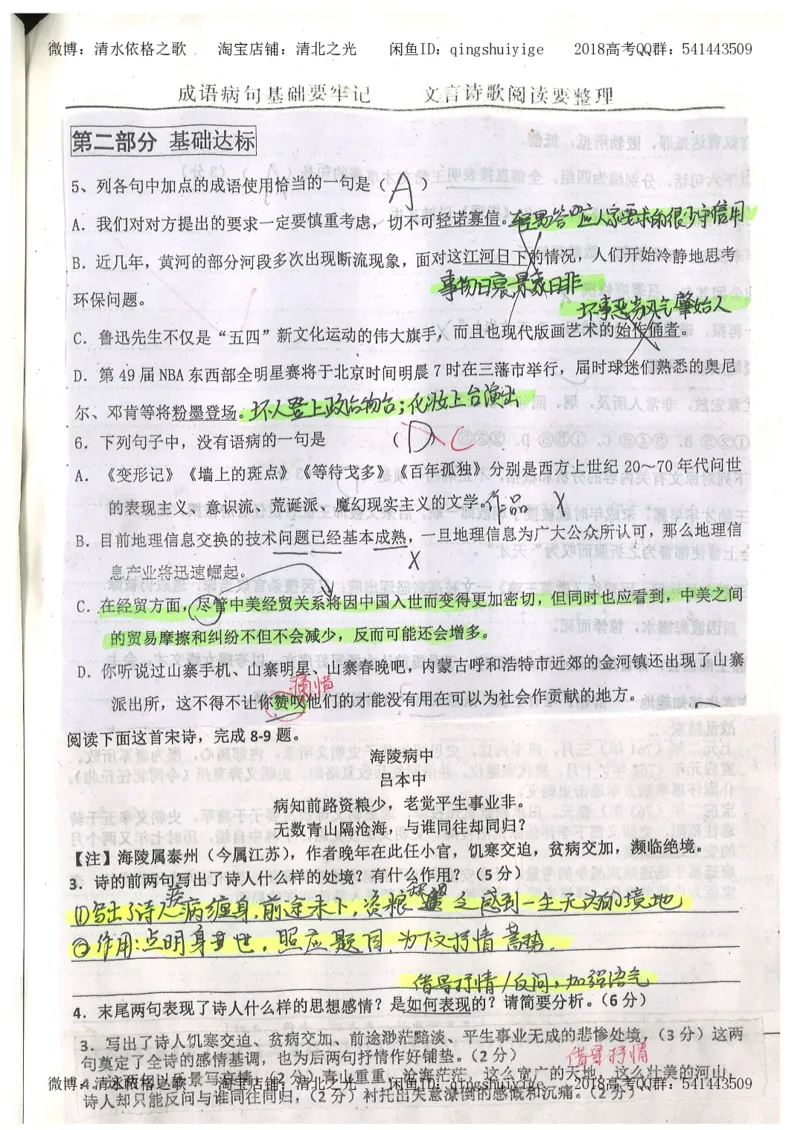 微博：清水依格之歌 淘宝店铺：清北之光 闲鱼ID：qingshuiyige 2018高考QQ群：541443509
成语病句基础要牢记 文言诗歌阅读要整理
第二部分 基础达标
5、列各句中加点的成语使用恰当的一句是（ A ）
A．我们对对方提出的要求一定要慎重考虑，切不可轻诺寡信。轻易答应人家要求的很少守信用
B．近几年，黄河的部分河段多次出现断流现象，面对这江河日下的情况，人们开始冷静地思考
事物日衰 景象日非
环保问题。
坏事恶劣风气肇始人
C．鲁迅先生不仅是“五四”新文化运动的伟大旗手，而且也现代版画艺术的始作俑者。
D．第 49 届 NBA 东西部全明星赛将于北京时间明晨 7 时在三藩市举行，届时球迷们熟悉的奥尼
尔、邓肯等将粉墨登场。坏人登上政治物台；化妆上台演出
6．下列句子中，没有语病的一句是 （ D ） C
A．《变形记》《墙上的斑点》《等待戈多》《百年孤独》分别是西方上世纪 20～70 年代问世
的表现主义、意识流、荒诞派、魔幻现实主义的文学。作品 X
B．目前地理信息交换的技术问题已经基本成熟，一旦地理信息为广大公众所认可，那么地理信
息产业将迅速崛起。 X
C．在经贸方面，尽管中美经贸关系将因中国入世而变得更加密切，但同时也应看到，中美之间
的贸易摩擦和纠纷不但不会减少，反而可能还会增多。
D．你听说过山寨手机、山寨明星、山寨春晚吧，内蒙古呼和浩特市近郊的金河镇还出现了山寨
痛惜
派出所，这不得不让你赞叹他们的才能没有用在可以为社会作贡献的地方。
阅读下面这首宋诗，完成 8-9 题。
海陵病中
吕本中
病知前路资粮少，老觉平生事业非。
无数青山隔沧海，与谁同往却同归？
【注】海陵属泰州（今属江苏），作者晚年在此任小官，饥寒交迫，贫病交加，濒临绝境。
3．诗的前两句写出了诗人什么样的处境？有什么作用？（5 分）
①写出了诗人疾病缠身，前途未卜，资粮匮乏感到一生无为的境地
②作用：点明身世，照应题目，为下文抒情蓄势．
借景抒情/反问，加强语气
4．末尾两句表现了诗人什么样的思想感情？是如何表现的？请简要分析。（6 分）
3．写出了诗人饥寒交迫、贫病交加、前途渺茫黯淡、平生事业无成的悲惨处境，（3 分）这两
句奠定了全诗的感情基调，也为后两句抒情作好铺垫。（2 分） 借景抒情
微博：清水依格之歌 淘宝店铺：清北之光 闲鱼ID：qingshuiyige 2018高考QQ群：541443509
诗人却只能反问与谁同往同归，（2 分）衬托出失意潦倒的感慨和沉痛。（2 分）